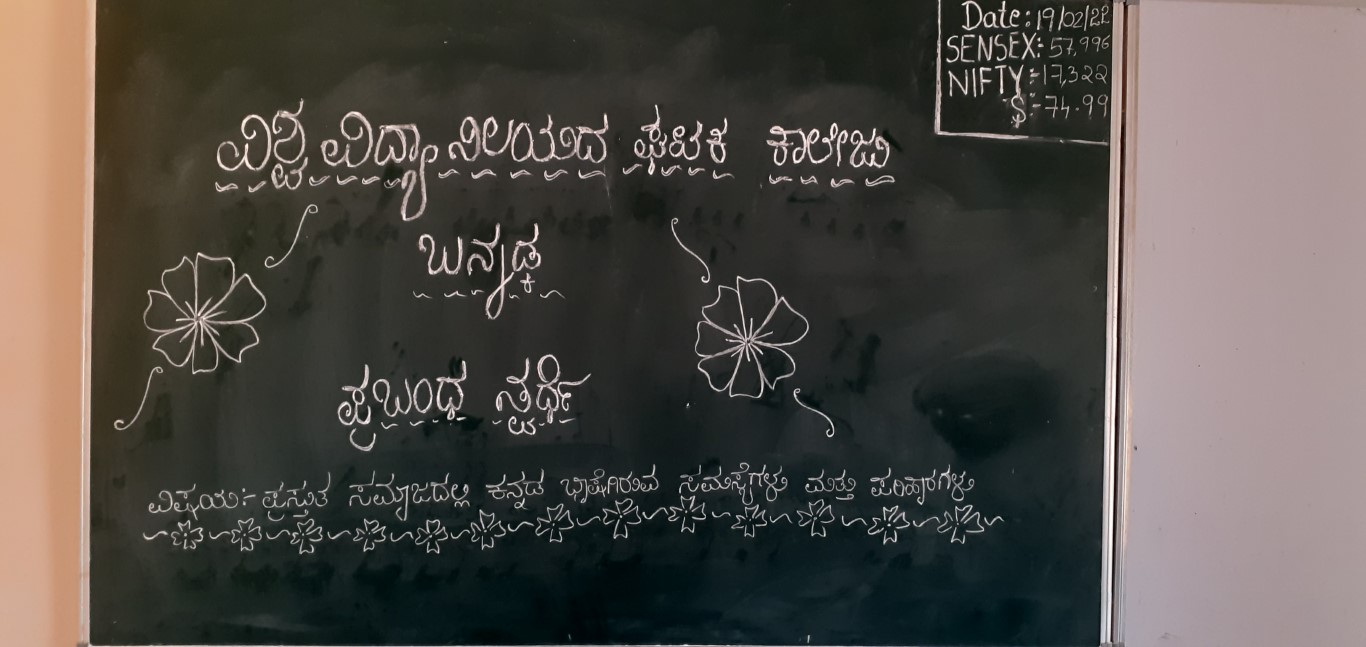 Date: 19/02/22
SENSEX:- 57,996
NIFTY:- 17,322
$:- 74.99
ವಿಶ್ವ ವಿದ್ಯಾನಿಲಯದ ಘಟಕ ಕಾಲೇಜು
ಪ್ರಬಂಧ ಸ್ಪರ್ಧೆ
ವಿಷಯ:- ಪ್ರಸ್ತುತ ಸಮಾಜದಲ್ಲಿ ಕನ್ನಡ ಭಾಷೆಗಿರುವ ಸಮಸ್ಯೆಗಳು ಮತ್ತು ಪರಿಹಾರಗಳು